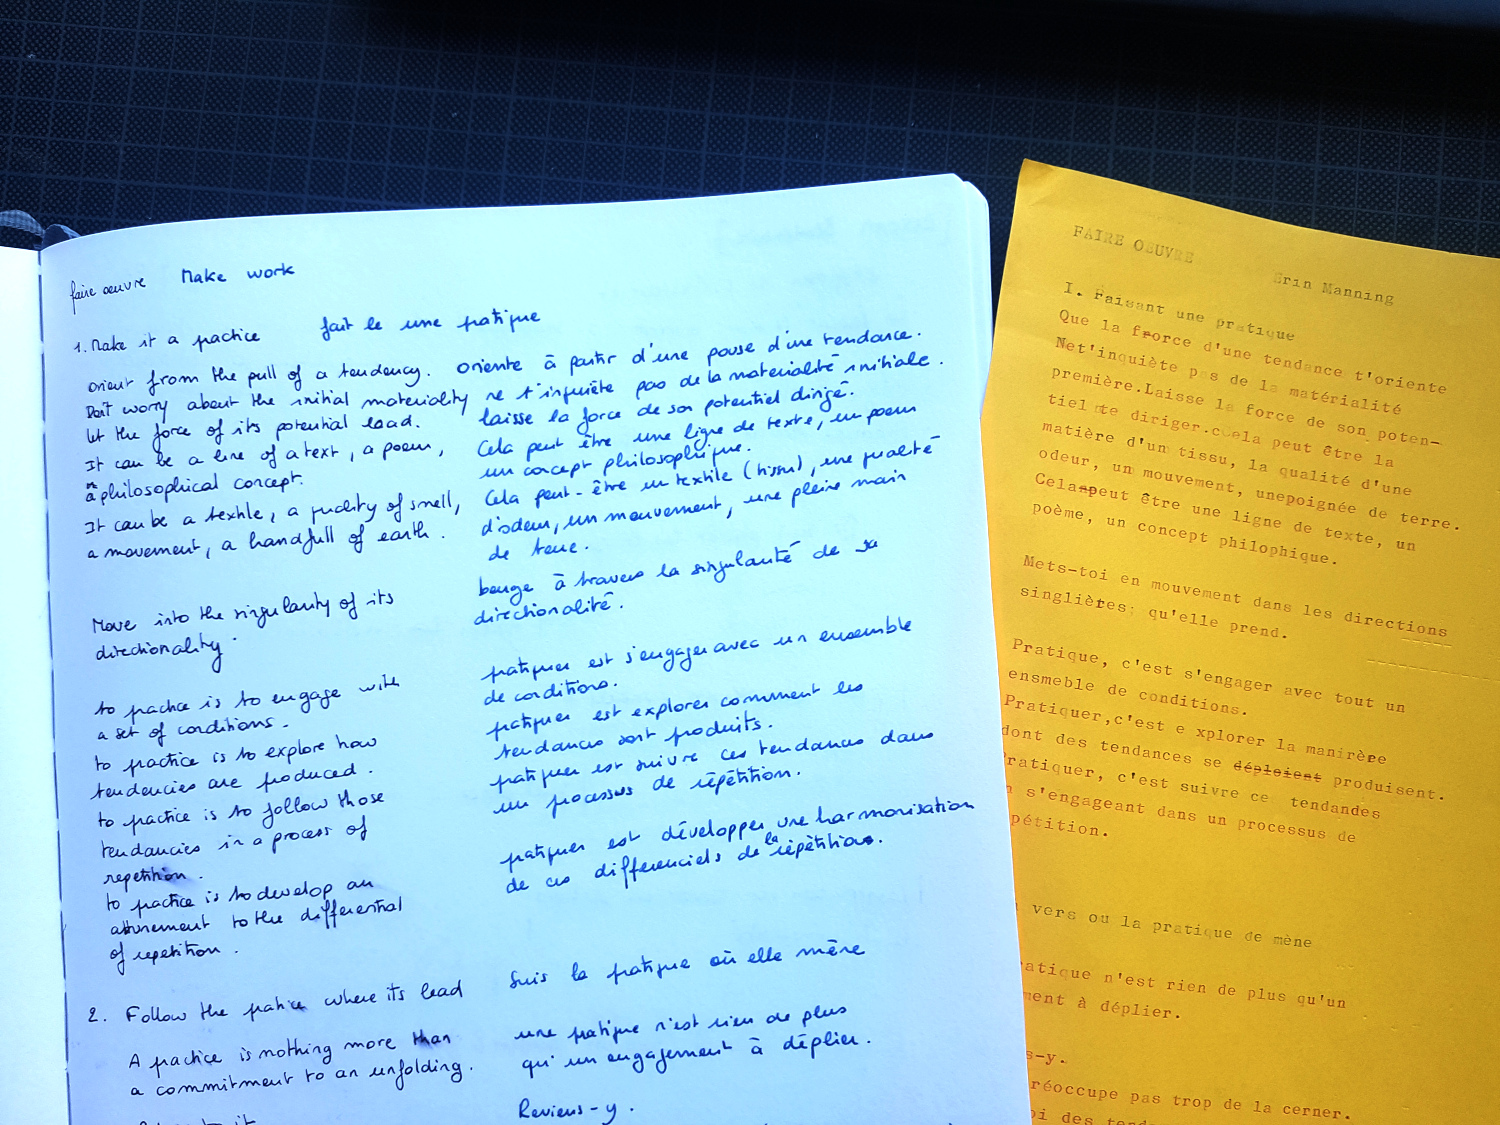 faire oeuvre Make work
1. Make it a practice
orient from the pull of a tendency.
Don't worry about the initial materiality
let the force of its potential lead.
It can be a line of a text, a poem,
a philosophical concept.
It can be a textile, a quality of smell,
a movement, a handfull of earth.
Move into the singularity of its
directionality.
to practice is to engage with
a set of conditions.
to practice is to explore how
tendencies are produced.
to practice is to follow those
tendancies in a process of
repetition.
to practice is to develop an
attunement to the differential
of repetition.
2. Follow the patice where its lead
A practice is nothing more than
a commitment to an unfolding.
fait le une pratique
oriente à partir d'une pouse d'une tendance.
ne t'inquiète pas de la materialité initiale.
laisse la force de son potentiel dirigé.
Cela peut être une ligne de texte, un poem
un concept philosophique.
Cela peut-être un textile (tissu), une qualité
d'odeur, un mouvement, une pleine main
de terre.
bouge à travers la singulanité de sa
directionalité.
pratiquer est s'engager avec un ensemble
de conditions.
pratiquer est explorer comment les
tendances sont produits.
pratiquer est suivre ces tendances dans
un processus de répétition.
pratiquer est développer une harmonisation
de ces differenciels de la répétition.
Suis la pratique où elle mène
une pratique n'est rien de plus
qu'un engagement à déplier.
Reviens-y.
FAIRE OEUVRE
Erin Manning
I. Faisant une pratique
Que la frorce d'une tendance t'oriente
Net'inquiète pas de la matérialité
première.Laisse la force de son poten-
tiel te diriger.ccela peut être la
matière d'un tissu, la qualité d'une
odeur, un mouvement, unepoignée de terre.
Celaspeut être une ligne de texte, un
poème, un concept philophique.
Mets-toi en mouvement dans les directions
singlières qu'elle prend.
Pratique, c'est s'engager avec tout un
ensmeble de conditions.
Pratiquer,c'est e xplorer la manirère
dont des tendances se déploient produisent.
Pratiquer, c'est suivre ce tendandes
s'engageant dans un processus de
pétition.
vers ou la pratique de mène
atique n'est rien de plus qu'un
ment à déplier.
s-y.
réoccupe pas trop de la cerner.